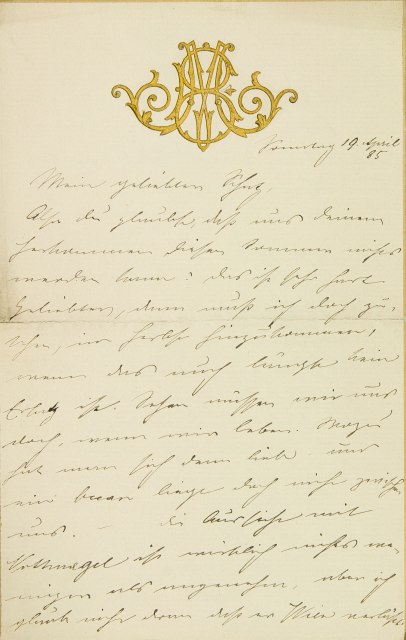 Sonntag 19 April
85
Mein geliebter Schatz,
Also du glaubst, daß aus deinem
Herkommen diesen Sommer nichts
werden kann? das ist sehr hart
Geliebter, dann muß ich doch zu-
sehen, im Herbst hinzukommen,
wenn das auch längst kein
Ersatz ist. Sehen müssen wir uns
doch, wenn wir leben. Wozu
hat man sich denn lieb und
ein Ocean liegt doch nicht zwischen
uns. — die Aussicht mit
Nothnagel ist wirklich nichts we-
niger als angenehm, aber ich
glaube nicht daran daß er Wien verläßt